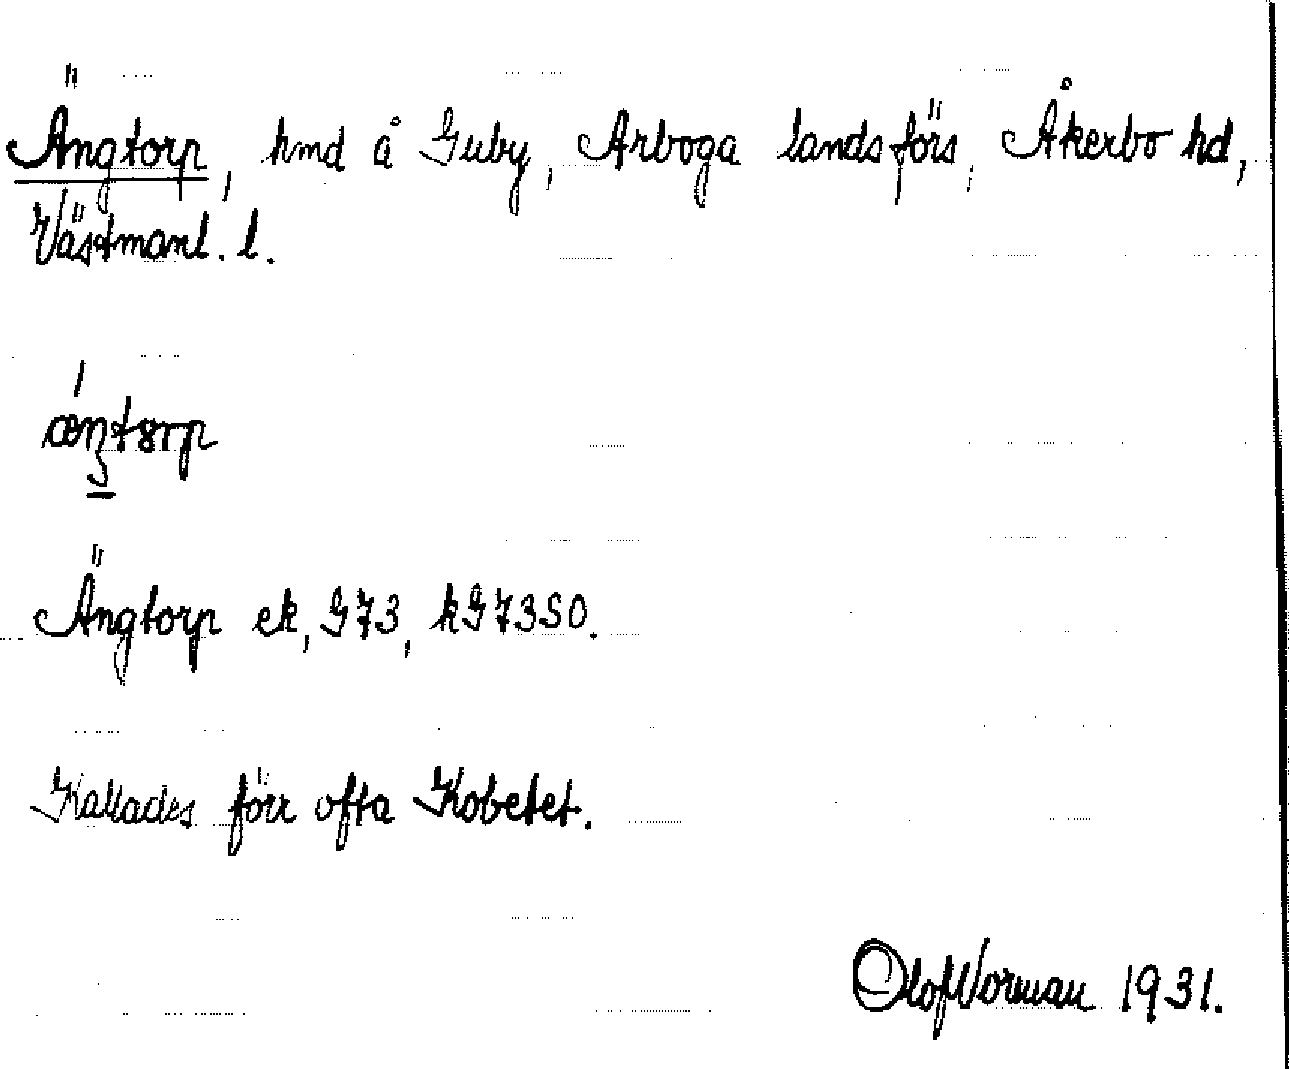 Ängtorp, hmd å Guby, Arboga landsförs, Åkerbo hd,
Västmanl. l.
Ängtorp ek, G73, kG73SO.
Kallades förr ofta Kobetet.
Olof Norman 1931.